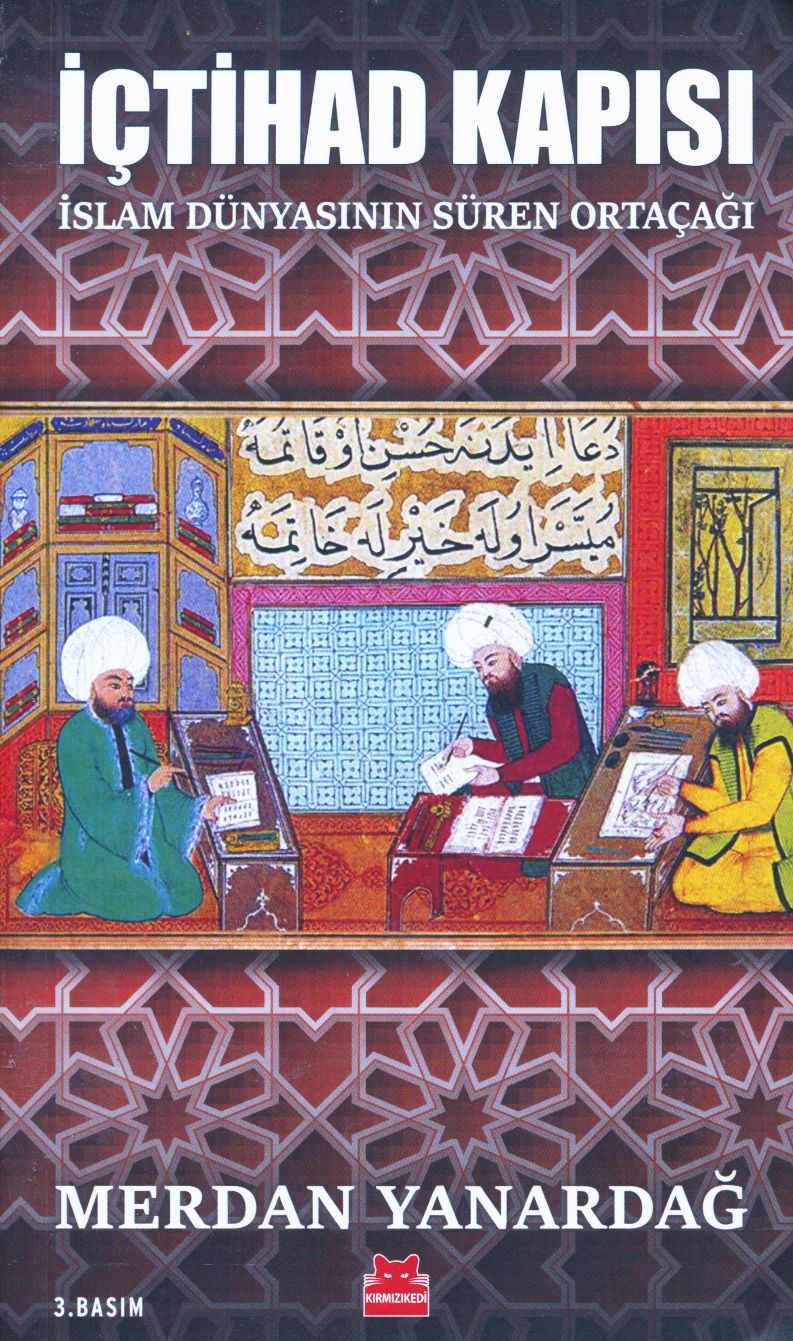 İÇTİHAD KAPISI
İSLAM DÜNYASININ SÜREN ORTAÇAĞI
دُعَا اِيدَنَه حُسْنِ اَوْقَاتِمَهْ
مُيَسَّر اَولَه خَيْرِ لَه خَاتِمَهْ
MERDAN YANARDAĞ
KIRMIZIKEDİ
3.BASIM